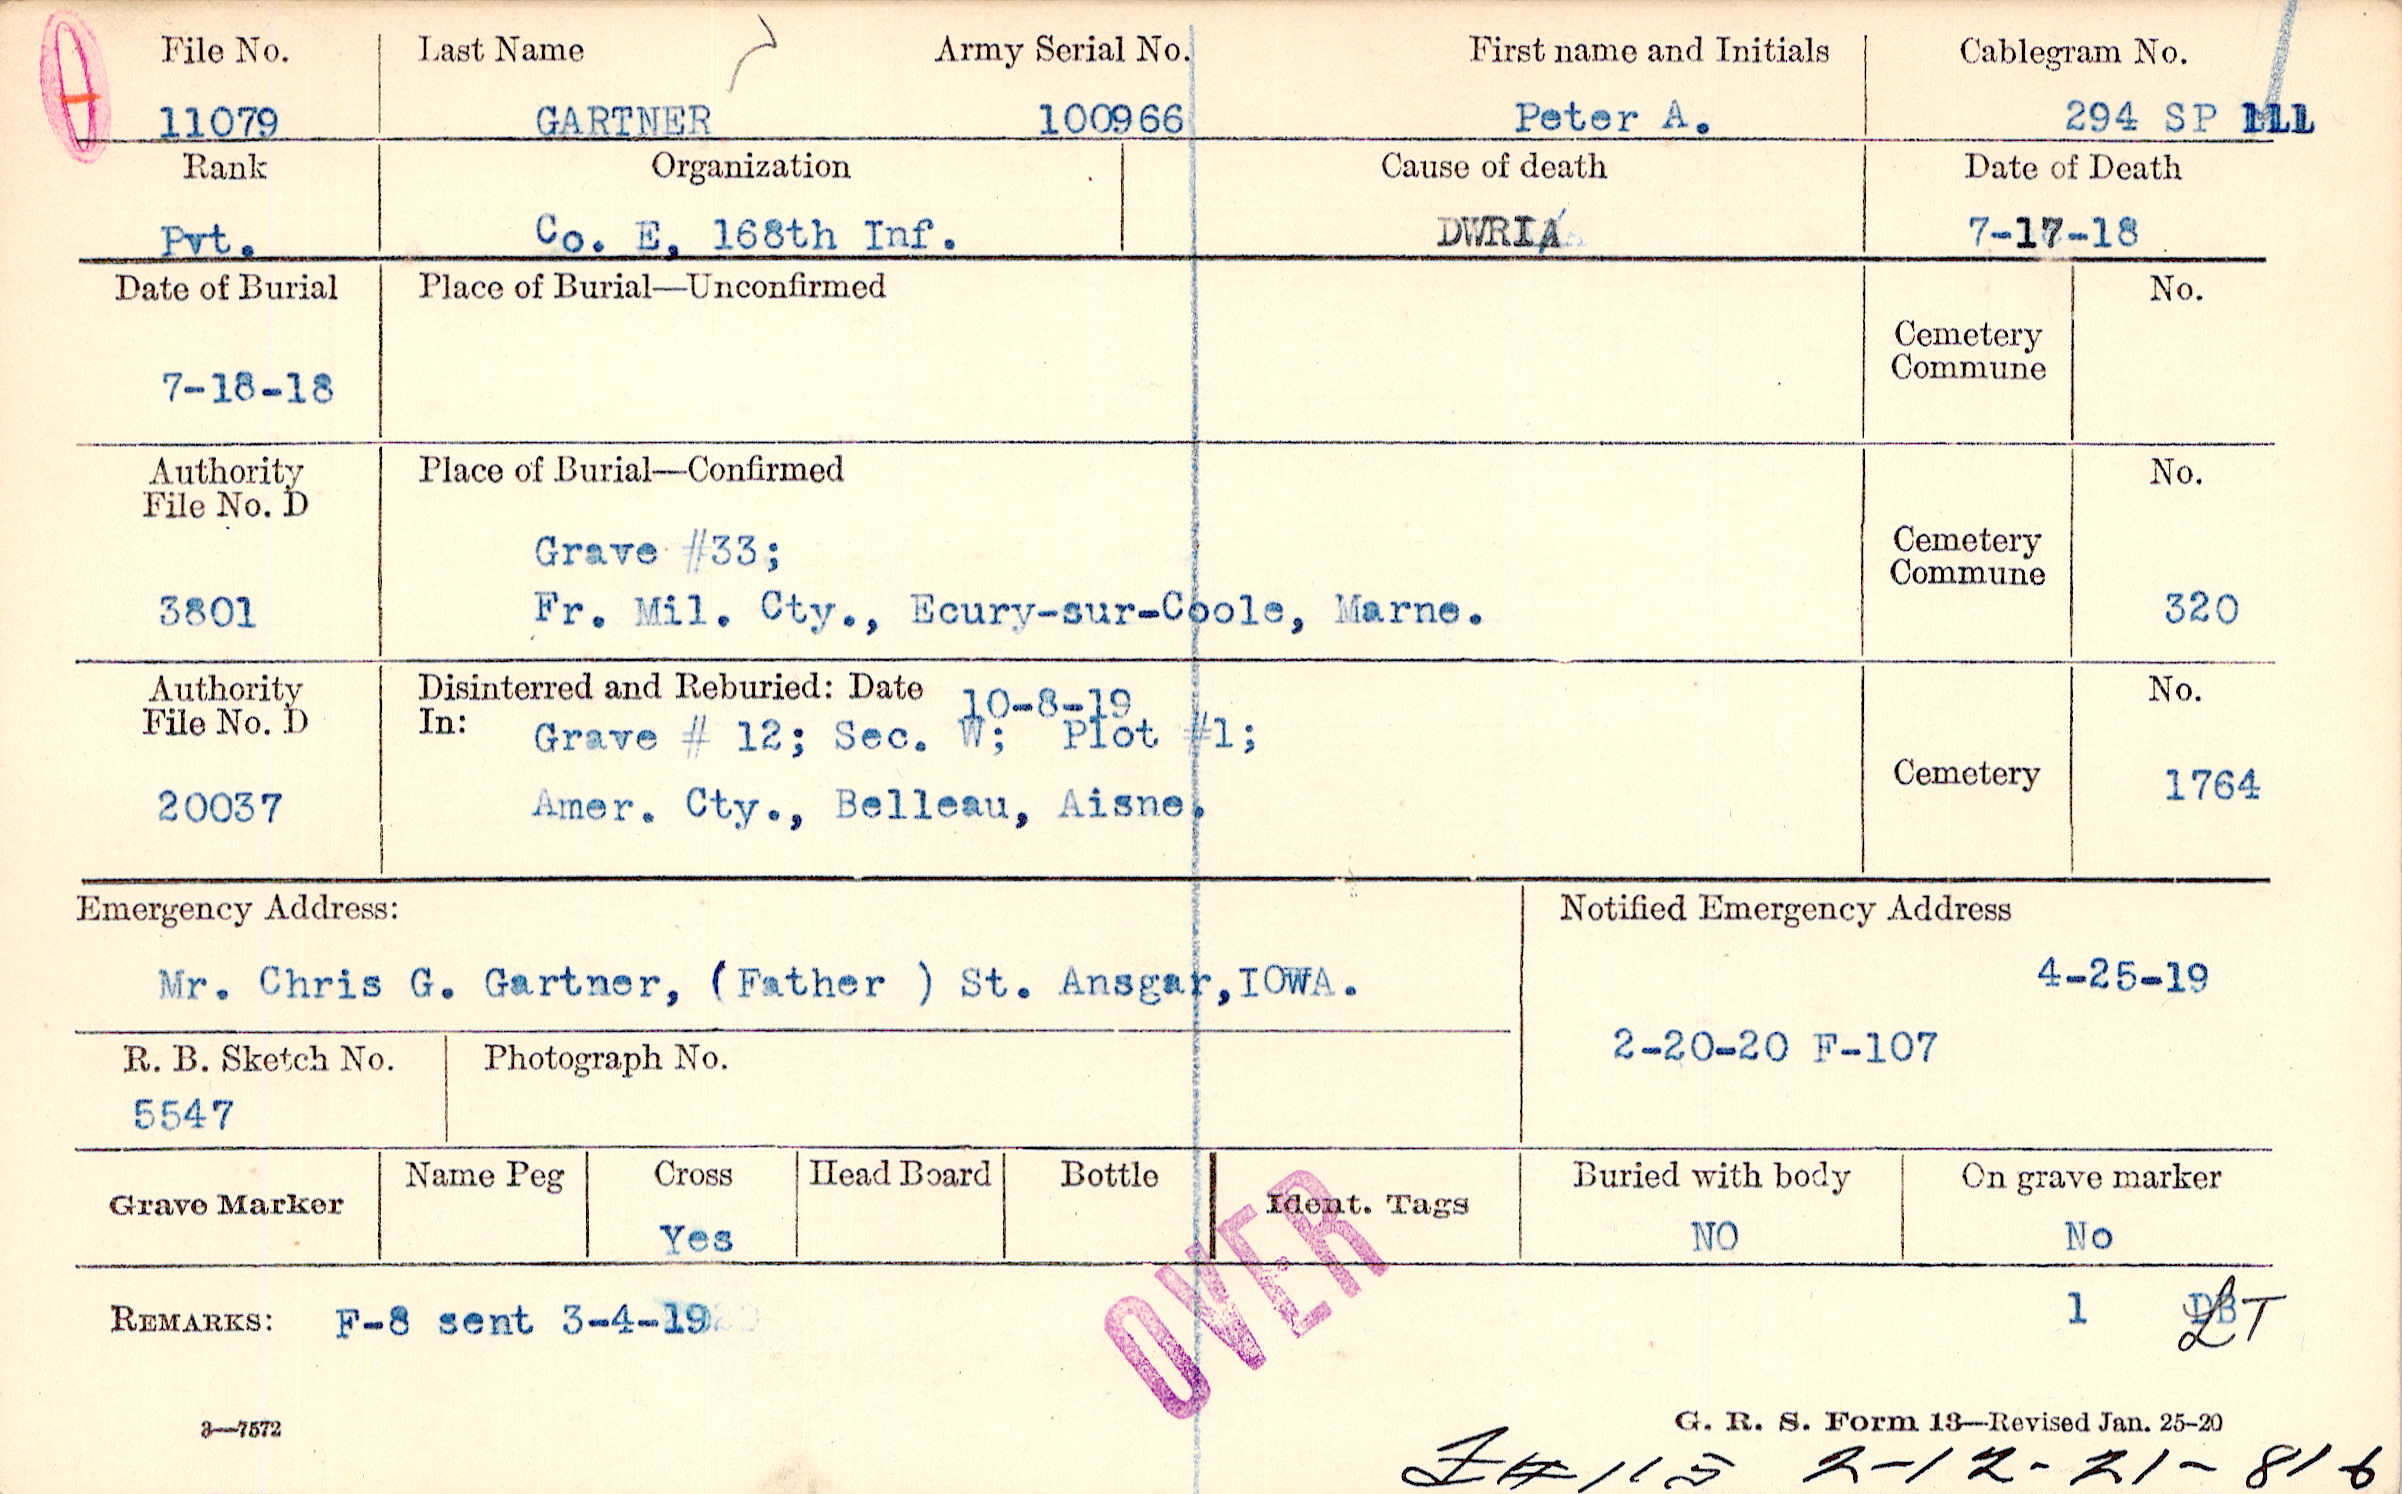 File No. Last Name Army Serial No. First name and Initials Cablegram No.
11079 GARTNER 100966 Peter A. 294 SP
Rank Organization Cause of death Date of Death
Pvt. Co. E, 168th Inf. DWRIA 7-17-18
Date of Burial Place of Burial—Unconfirmed No.
Cemetery
Commune
7-18-18
Authority Place of Burial—Confirmed No.
File No. D
Grave #33;
Cemetery
Commune
3801 Fr. Mil. Cty., Ecury-sur-Coole, Marne. 320
Authority Disinterred and Reburied: Date 10-8-19 No.
File No. D In: Grave # 12; Sec. W; Plot #1;
Cemetery
20037 Amer. Cty., Belleau, Aisne. 1764
Emergency Address: Notified Emergency Address
Mr. Chris G. Gartner, (Father ) St. Ansgar,IOWA. 4-25-19
2-20-20 F-107
R. B. Sketch No. Photograph No.
5547
Grave Marker Name Peg Cross Head Board Bottle Ident. Tags Buried with body On grave marker
Yes NO No
OVER
REMARKS: F-8 sent 3-4-19 1 DB LT
3—7572 G. R. S. Form 13—Revised Jan. 25-20
#115 2-12-21-816